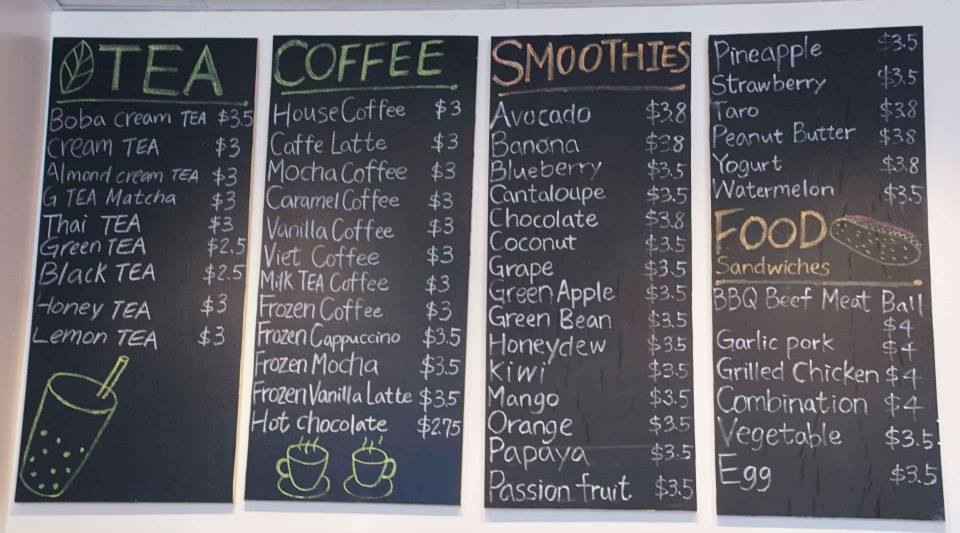 TEA
Boba cream TEA $3.5
cream TEA $3
Almond cream TEA $3
G TEA Matcha $3
Thai TEA $3
Green TEA $2.5
Black TEA $2.5
Honey TEA $3
Lemon TEA $3
COFFEE
House Coffee $3
Caffe Latte $3
Mocha Coffee $3
Caramel Coffee $3
Vanilla Coffee $3
Viet Coffee $3
Milk TEA Coffee $3
Frozen Coffee $3
Frozen Cappuccino $3.5
Frozen Mocha $3.5
Frozen Vanilla Latte $3.5
Hot chocolate $2.75
SMOOTHIES
Avocado $3.8
Banana $3.8
Blueberry $3.5
Cantaloupe $3.5
Chocolate $3.8
Coconut $3.5
Grape $3.5
Green Apple $3.5
Green Bean $3.5
Honeydew $3.5
Kiwi $3.5
Mango $3.5
Orange $3.5
Papaya $3.5
Passion fruit $3.5
Pineapple $3.5
Strawberry $3.5
Taro $3.8
Peanut Butter $3.8
Yogurt $3.8
Watermelon $3.5
FOOD
Sandwiches
BBQ Beef Meat Ball
$4
Garlic pork $4
Grilled Chicken $4
Combination $4
Vegetable $3.5
Egg $3.5